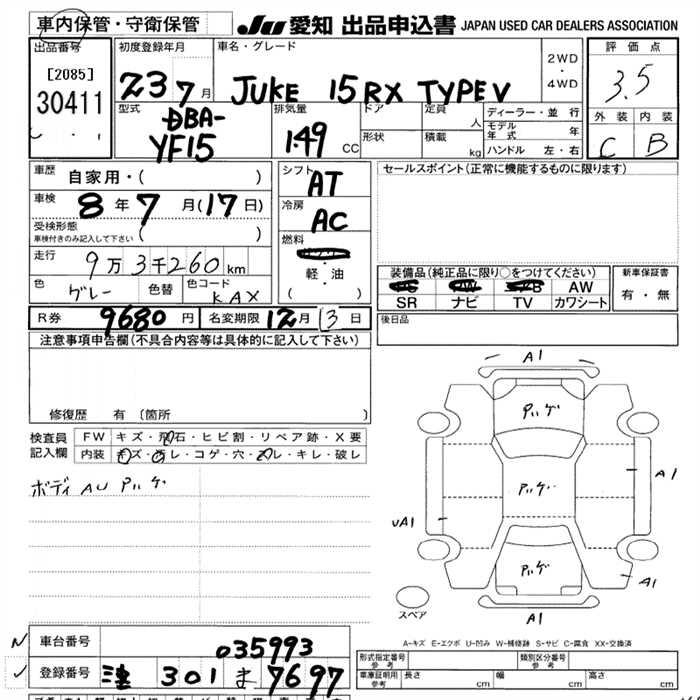 車内保管・守衛保管
JU 愛知 出品申込書 JAPAN USED CAR DEALERS ASSOCIATION
出品番号
[2085]
30411
初度登録年月
23 7月
車名・グレード
JUKE 15RX TYPE V
2WD
・
4WD
評価点
3.5
外装 内装
C B
型式
DBA-
YF15
排気量
1.49 CC
ドア
形状
定員 人
積載 kg
ディーラー・並行
モデル年式 年
ハンドル 左・右
車歴 自家用・( )
車検 8年7月(17日)
受検形態
車検付きのみ記入して下さい ( )
走行 9万3千260km
色 グレー 色替 色コード KAX
シフト AT
冷房 AC
燃料
軽・油
( )
セールスポイント(正常に機能するものに限ります)
装備品(純正品に限り○をつけてください)
AW
SR ナビ TV カワシート
新車保証書
有・無
R券 9680円 名変期限 12月13日
後日品
注意事項申告欄(不具合内容等は具体的に記入して下さい)
修復歴 有 (箇所 )
検査員記入欄
FW キズ・飛石・ヒビ割・リペア跡・X要
内装 キズ・ヨレ・コゲ・穴・スレ・キレ・破レ
ボディ AU Pハゲ
A1
Pハゲ
A1
Pハゲ
UA1
Pハゲ
A1
A1
スペア
A−キズ E−エクボ U−凹み W−補修跡 S−サビ C−腐食 XX−交換済
車台番号 035993
登録番号 301 ま 7697
形式指定番号 参考
類別区分番号 参考
車庫証明用 参考 長さ cm 幅 cm 高さ cm